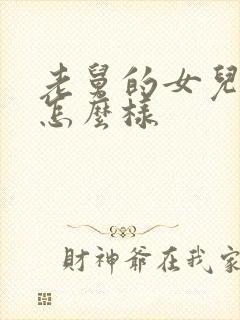 老舅的女兒
怎麼樣
財神爺在我家